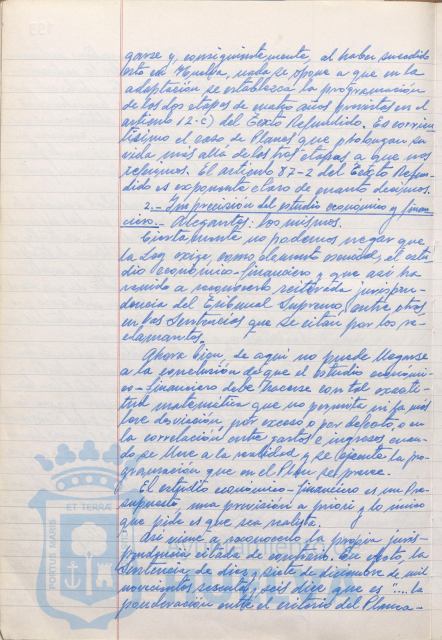 garse y, consiguientemente, al haber sucedido
esto en Huelva, nada se opone a que en la
adaptación se establezca la programación
de los dos etapas de cuatro años previstas en el
artículo 12-c) del Texto Refundido. Es corrien-
tísimo el caso de Planes que prolongan su
vida más allá de las tres etapas a que nos
referimos. El artículo 87-2 del Texto Refun-
dido es exponente claro de cuanto decimos.
2.- Imprecisión del estudio económico y finan-
ciero.- Alegantes: los mismos.
Ciertamente no podemos negar que
la Ley exige, como elemento esencial, el estu-
dio económico-financiero y que así ha
venido a reconocerlo reiterada jurispru-
dencia del Tribunal Supremo, entre otras,
en las Sentencias que se citan por los re-
clamantes.
Ahora bien, de aquí no puede llegarse
a la conclusión de que el estudio económi-
co-financiero debe hacerse con tal exacti-
tud matemática que no permita ni la más
leve desviación, por exceso o por defecto, en
la correlación entre gastos e ingresos cuan-
do se lleve a la realidad y se ejecute la pro-
gramación que en el Plan se prevee.
El estudio económico-financiero es un Pre-
supuesto, una previsión a priori y lo único
que pide es que sea realista.
Así viene a reconocerlo la propia juris-
prudencia citada de contrario. En efecto, la
Sentencia de diez y siete de diciembre de mil
novecientos sesenta y seis dice que es "... la
ponderación entre el criterio del Planea-
PORTUS MARIS
ET TERRÆ